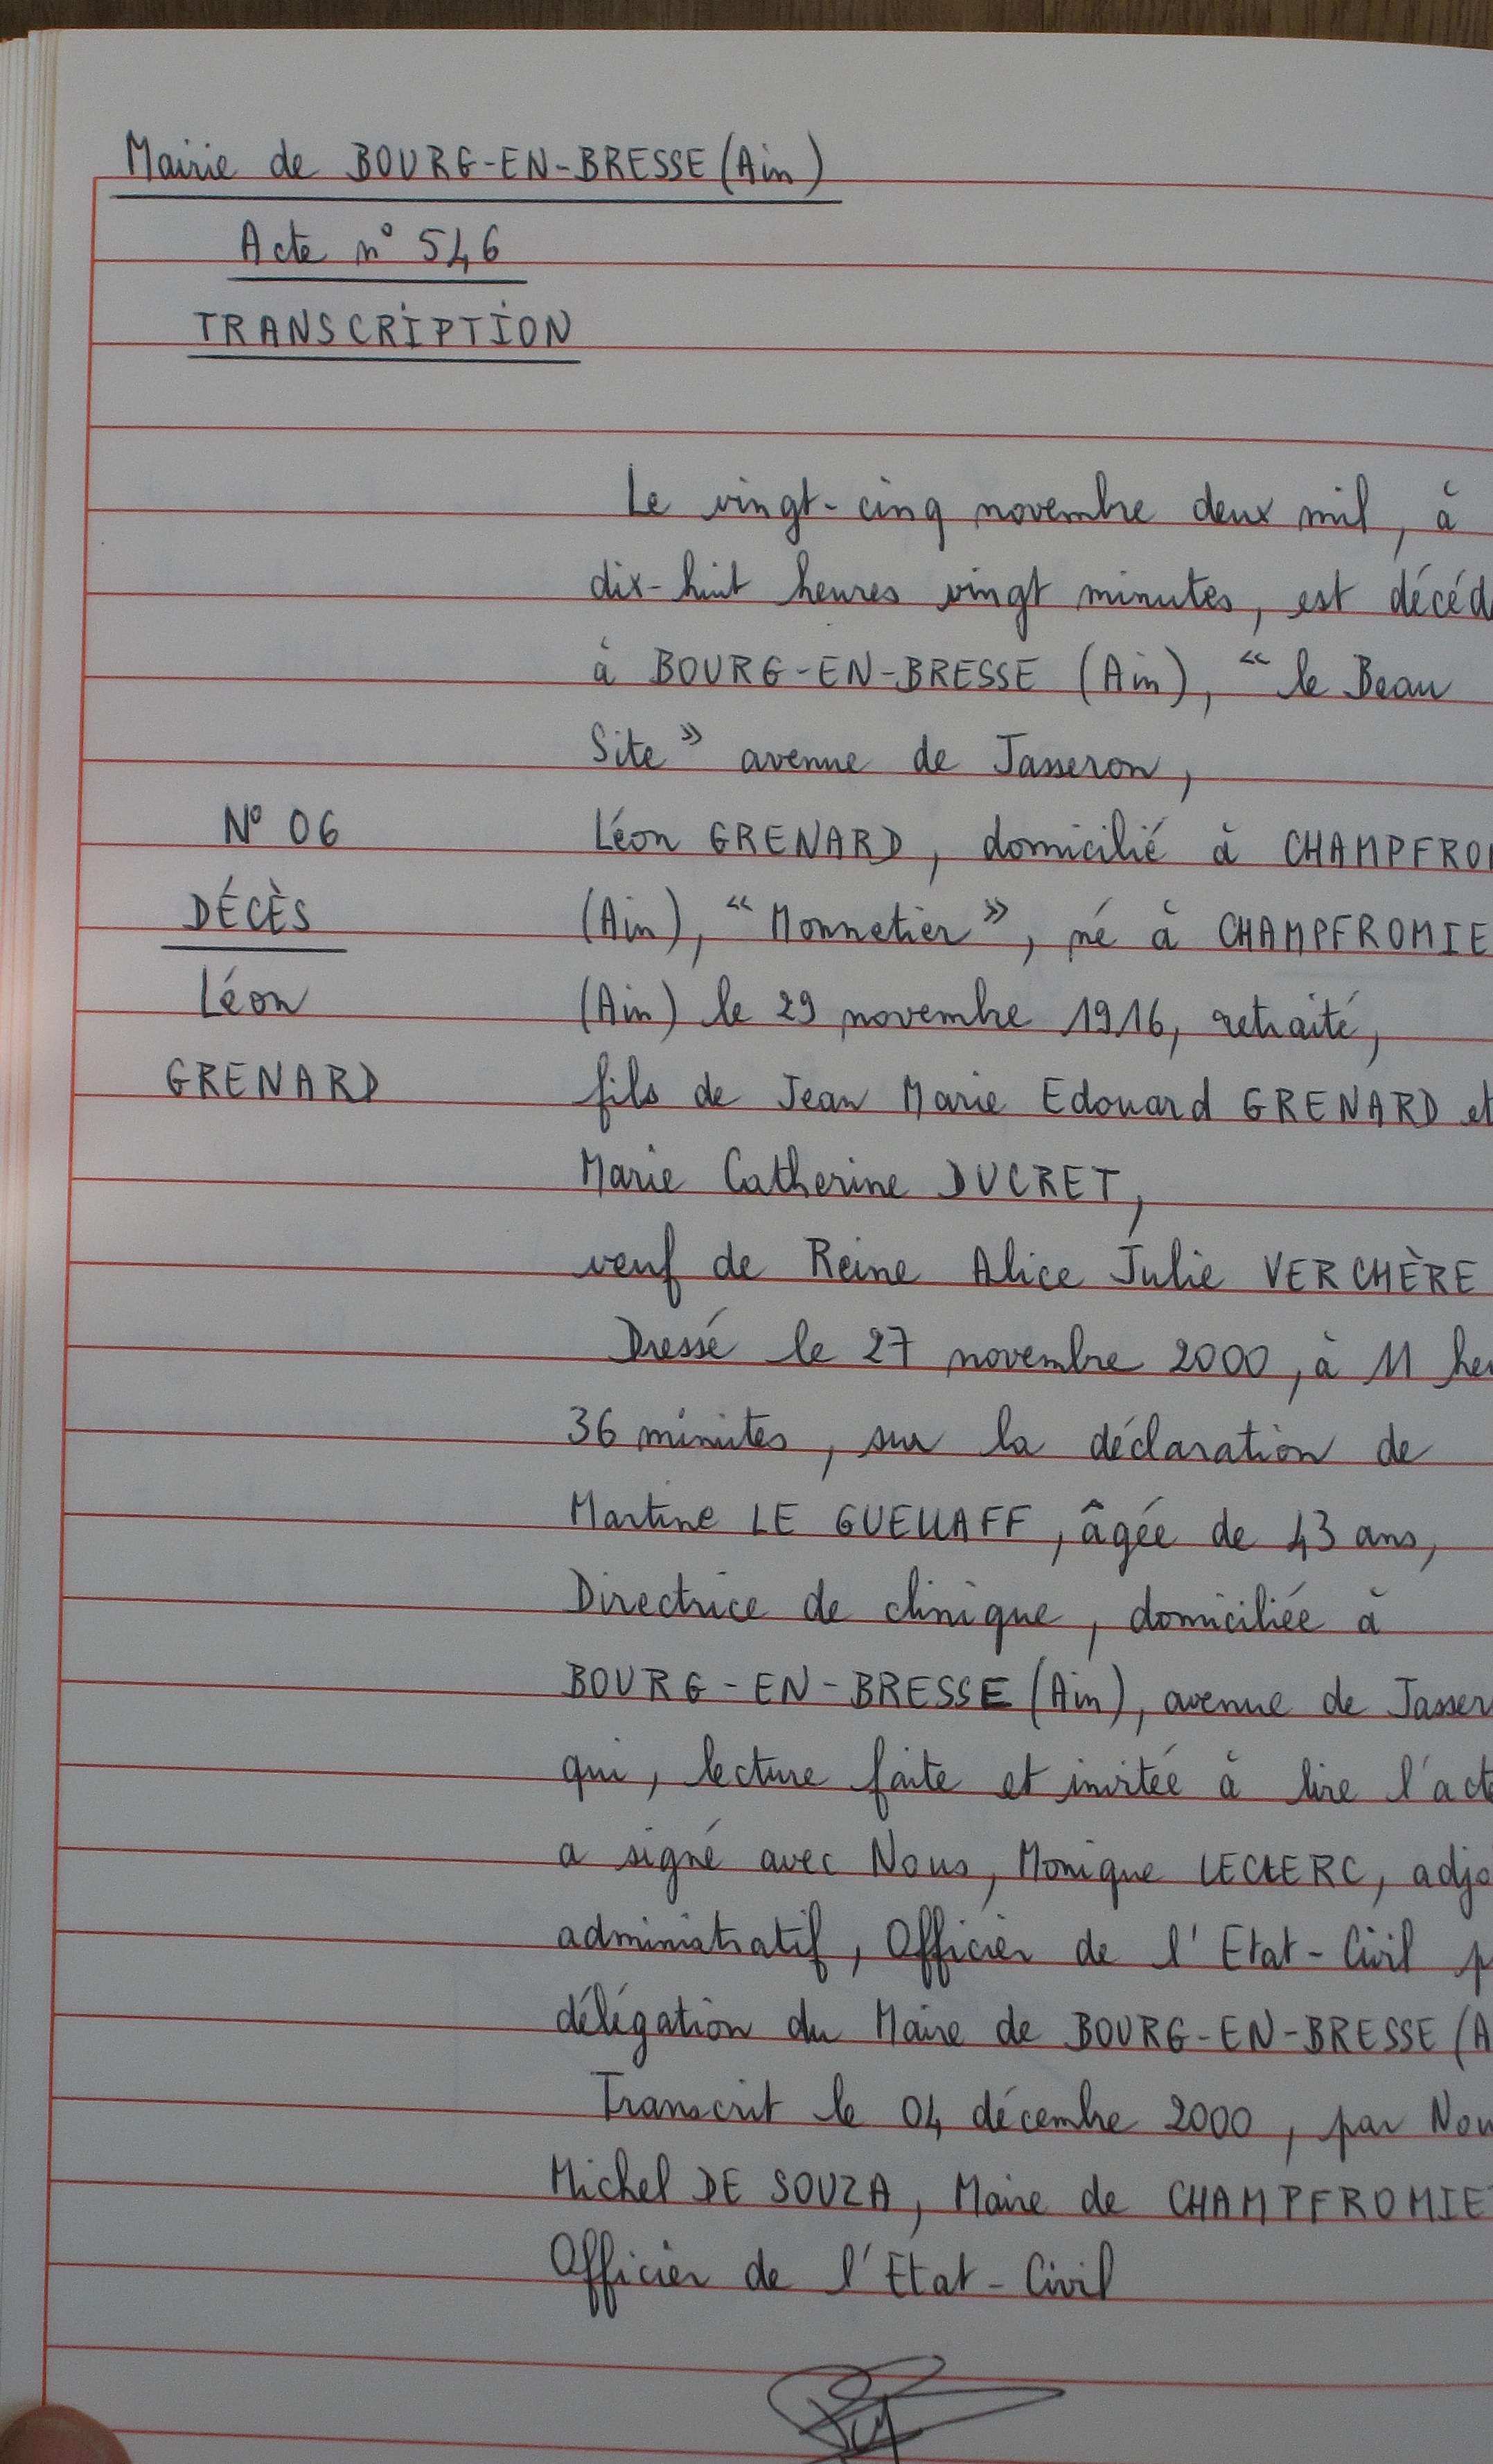 Mairie de BOURG-EN-BRESSE (Ain)
Acte n° 546
TRANSCRIPTION
Le vingt-cinq novembre deux mil, à
dix-huit heures vingt minutes, est décéd
à BOURG-EN-BRESSE (Ain), « le Beau
Site » avenue de Jasseron,
N° 06
DÉCÈS
Léon
GRENARD
Léon GRENARD, domicilié à CHAMPFRO
(Ain), « Monnetier », né à CHAMPFROMIE
(Ain) le 29 novembre 1916, retraité,
fils de Jean Marie Edouard GRENARD et
Marie Catherine DUCRET,
veuf de Reine Alice Julie VERCHÈRE
Dressé le 27 novembre 2000, à 11 heu
36 minutes, sur la déclaration de
Martine LE GUELLAFF, âgée de 43 ans,
Directrice de clinique, domiciliée à
BOURG-EN-BRESSE (Ain), avenue de Jasser
qui, lecture faite et invitée à lire l'act
a signé avec Nous, Monique LECLERC, adjo
administratif, Officier de l'Etat-Civil p
délégation du Maire de BOURG-EN-BRESSE (A
Transcrit le 04 décembre 2000, par Nou
Michel DE SOUZA, Maire de CHAMPFROMIE
Officier de l'Etat-Civil